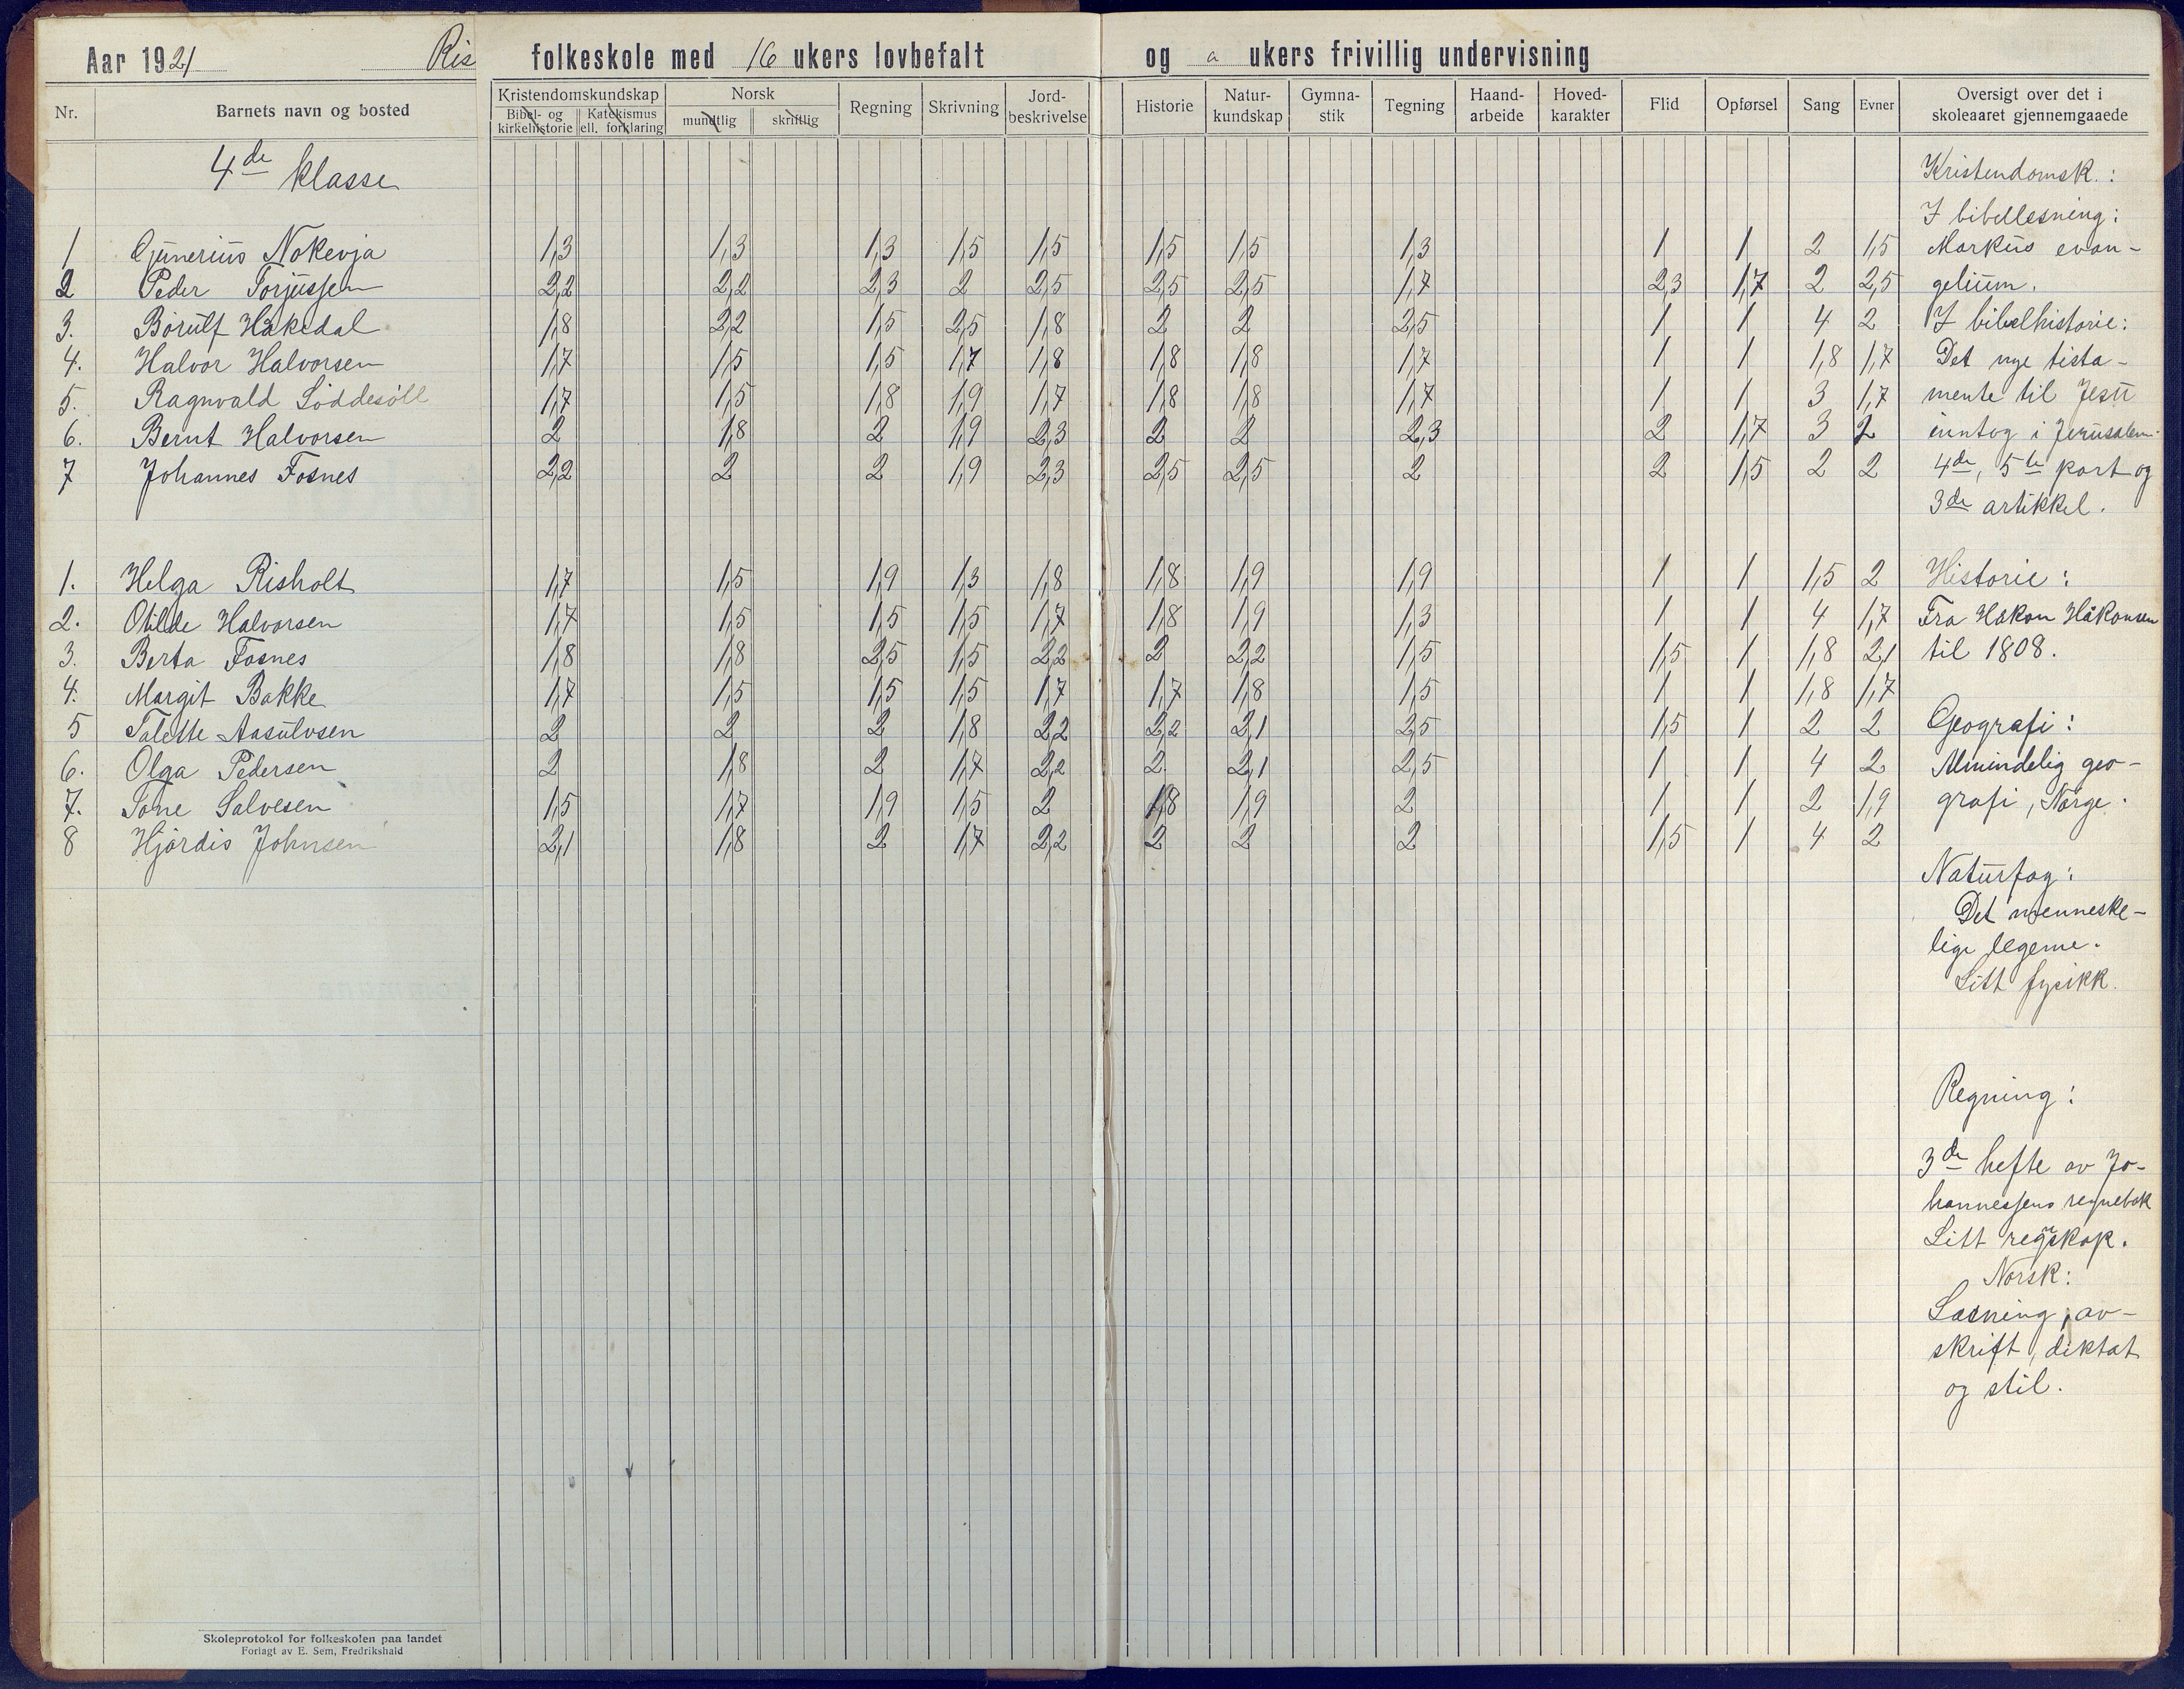 Aar 1921 Ris folkeskole med 16 ukers lovbefalt og a ukers frivillig undervisning
Nr. Barnets navn og bosted Kristendomskundskap Bibel- og kirkehistorie Katekismus ell. forklaring Norsk mundtlig skriftlig Regning Skrivning Jord-beskrivelse Historie Natur-kundskap Gymna-stik Tegning Haand-arbeide Hoved-karakter Flid Opførsel Sang Evner Oversigt over det i skoleaaret gjennemgaaede
4de klasse
1 Gunerius Nokevja 1,3 1,3 1,3 1,5 1,5 1,5 1,5 1,3 1 1 2 1,5
2 Peder Torjussen 2,2 2,2 2,3 2 2,5 2,5 2,5 1,7 2,3 1,7 2 2,5
3. Børulf Håkedal 1,8 2,2 1,5 2,5 1,8 2 2 2,5 1 1 4 2
4. Halvor Halvorsen 1,7 1,5 1,5 1,7 1,8 1,8 1,8 1,7 1 1 1,8 1,7
5. Ragnvald Løddesöll 1,7 1,5 1,8 1,9 1,7 1,8 1,8 1,7 1 1 3 1,7
6. Bernt Halvorsen 2 1,8 2 1,9 2,3 2 2 2,3 2 1,7 3 2
7 Johannes Fosnes 2,2 2 2 1,9 2,3 2,5 2,5 2 2 1,5 2 2
1. Helga Risholt 1,7 1,5 1,9 1,3 1,8 1,8 1,9 1,9 1 1 1,5 2
2. Otilde Halvorsen 1,7 1,5 1,5 1,5 1,7 1,8 1,9 1,3 1 1 4 1,7
3. Berta Fosnes 1,8 1,8 2,5 1,5 2,2 2 2,2 1,5 1,5 1 1,8 2,1
4. Margit Bakke 1,7 1,5 1,5 1,5 1,7 1,7 1,8 1,5 1 1 1,8 1,7
5 Talette Aasulvsen 2 2 2 1,8 2,2 2,2 2,1 2,5 1,5 1 2 2
6. Olga Pedersen 2 1,8 2 1,7 2,2 2 2,1 2,5 1 1 4 2
7. Tone Salvesen 1,5 1,7 1,9 1,5 2 1,8 1,9 2 1 1 2 1,9
8 Hjördis Johnsen 2,1 1,8 2 1,7 2,2 2 2 2 1,5 1 4 2
Kristendomsk.:
I bibellesning:
Markus evan-
gelium.
I bibelhistorie:
Det nye testa-
mente til Jesu
inntog i Jerusalem.
4de, 5te part og
3de artikkel.
Historie:
Fra Håkon Håkonsen
til 1808.
Geografi:
Almindelig geo-
grafi, Norge.
Naturfag:
Det menneske-
lige legeme.
Litt fysikk.
Regning:
3de hefte av Jo-
hannessens regnebok
Litt regnskap.
Norsk:
Læsning, av-
skrift, diktat
og stil.
Skoleprotokol for folkeskolen paa landet
Forlagt av E. Sem, Fredrikshald